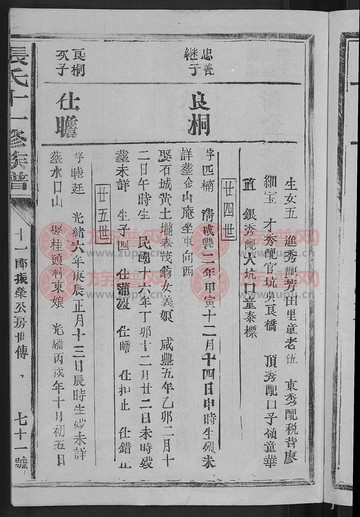 生女五 進秀配芳田里童老伍 東秀配税背廖
細宝 才秀配官坑吳良橋 頂秀配口子嶺童華
直 銀秀配火坑口童泰標
廿四世
忠善
继子
良桐
字匹楠 清咸豐二年甲寅十二月十四日申時生歿未
詳葬金山庵坐東向西
娶石城黄土 翁女義娘 咸豐五年乙卯二月十
二日午時生 民國十六年丁卯十二月廿二日未時歿
葬未詳 生子四 仕瞻 仕 仕 仕錯
廿五世
良桐
次子
仕瞻
字睦廷 光緒六年庚辰正月十三日辰時生歿未詳
葬水口山 娶桂頭 東娘 光緒丙戌年十月初五日
張氏十一修族譜
十一郎振榮公房世傳
七十一號